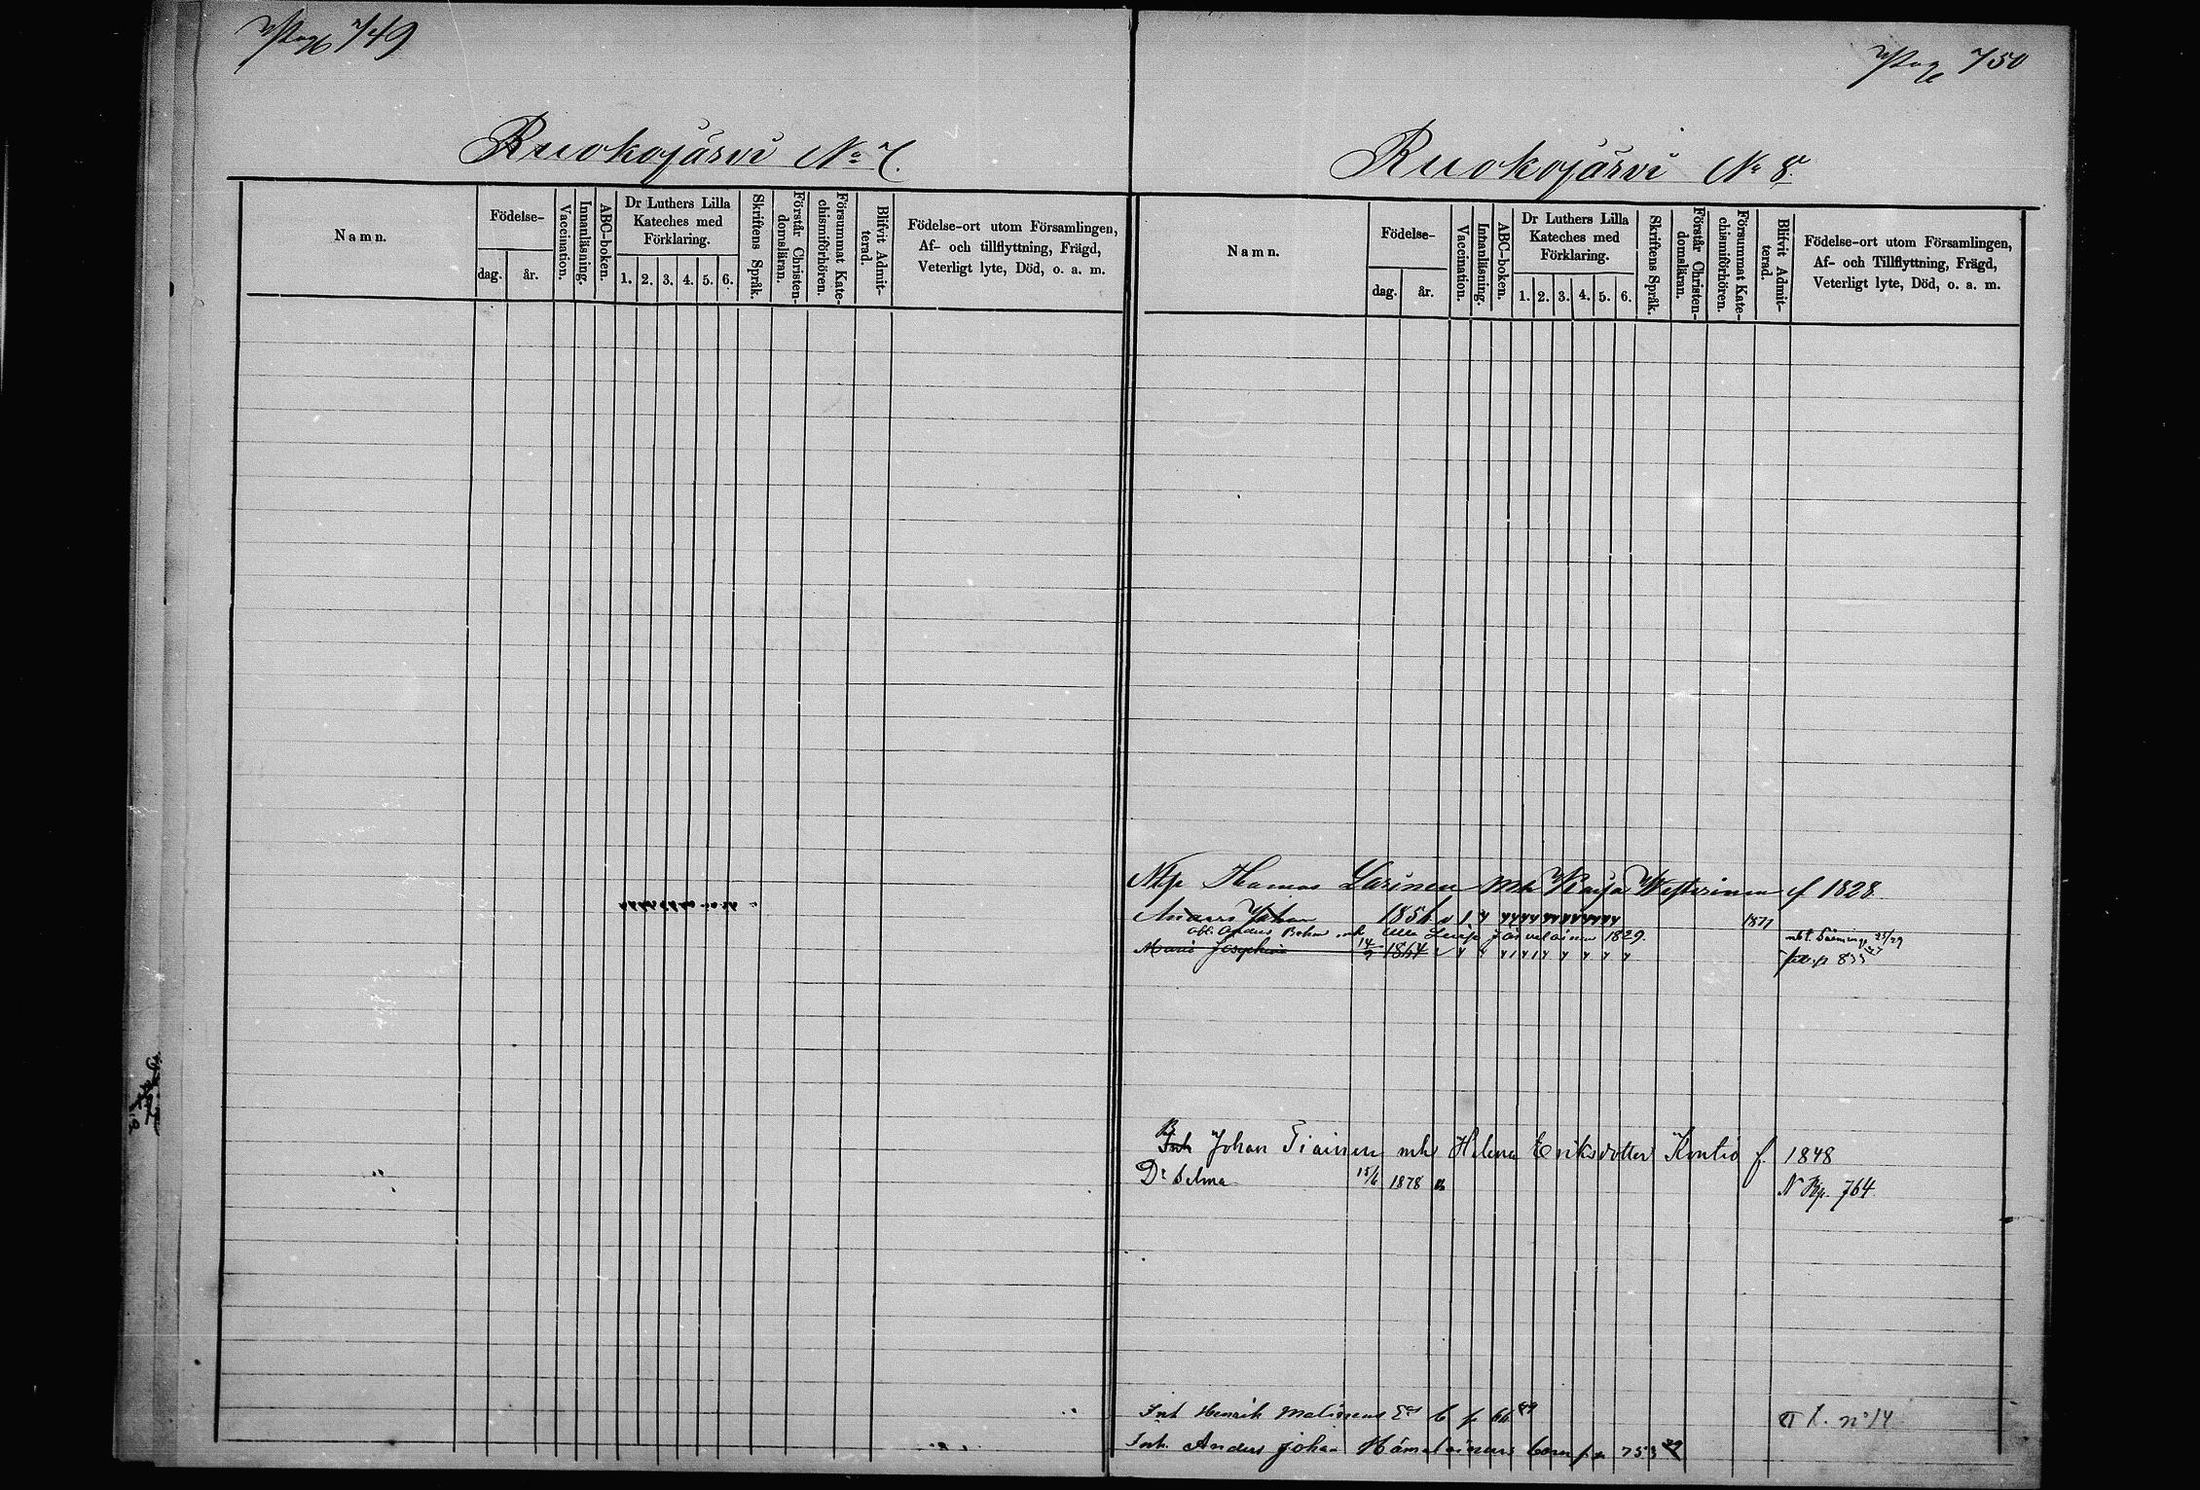 Pag 749
Ruokojärvi No 7.
Namn.
Födelse-
dag. år.
Vaccination.
Innanläsning.
ABC-boken.
Dr Luthers Lilla
Kateches med
Förklaring.
1. 2. 3. 4. 5. 6.
Skriftens Språk.
Förstår Christen-
domsläran.
Försummat Kate-
chismiförhören.
Blifvit Admit-
terad.
Födelse-ort utom Församlingen,
Af- och tillflyttning, Frägd,
Veterligt lyte, Död, o. a. m.
Pag 750
Ruokojärvi No 8.
Namn.
Födelse-
dag. år.
Vaccination.
Innanläsning.
ABC-boken.
Dr Luthers Lilla
Kateches med
Förklaring.
1. 2. 3. 4. 5. 6.
Skriftens Språk.
Förstår Christen-
domsläran.
Försummat Kate-
chismiförhören.
Blifvit Admit-
terad.
Födelse-ort utom Församlingen,
Af- och Tillflyttning, Frägd,
Veterligt lyte, Död, o. a. m.
Thomas Larinen mh Kaisa Westerinen f 1828
Anders Johan 1856 1877
Anders mh Ulla Järveläinen 1829.
Maria Josephina 14/9 1864
Johan Tiainen mh Helena Eriksdotter Kontio f. 1848
Dr Selma 15/6 1878 N Rp. 764
Inh Henrik Malinens b p 66 no 14
Inh. Anders Johan Hämeläinens barn p 753